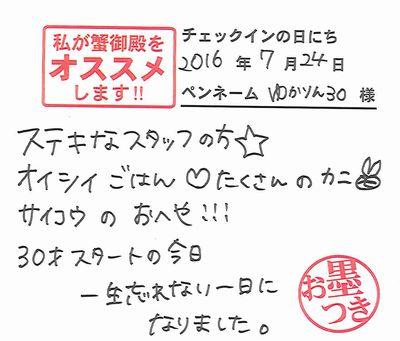 私が蟹御殿を
オススメ
します!!
チェックインの日にち
2016 年 7 月 24 日
ペンネーム ゆかりん30 様
ステキなスタッフの方☆
オイシイ ごはん ♡ たくさん の カニ
サイコウ の おへや!!!
30才スタートの今日
一生忘れない一日に
なりました。
お墨つき